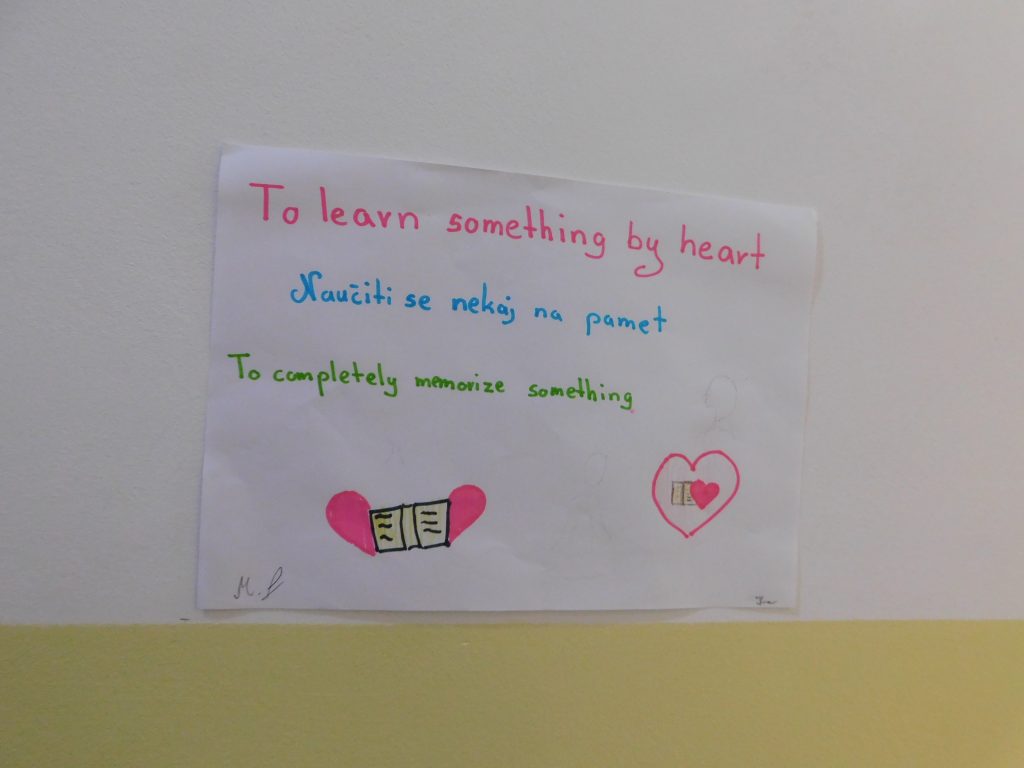 To learn something by heart
Naučiti se nekaj na pamet
To completely memorize something